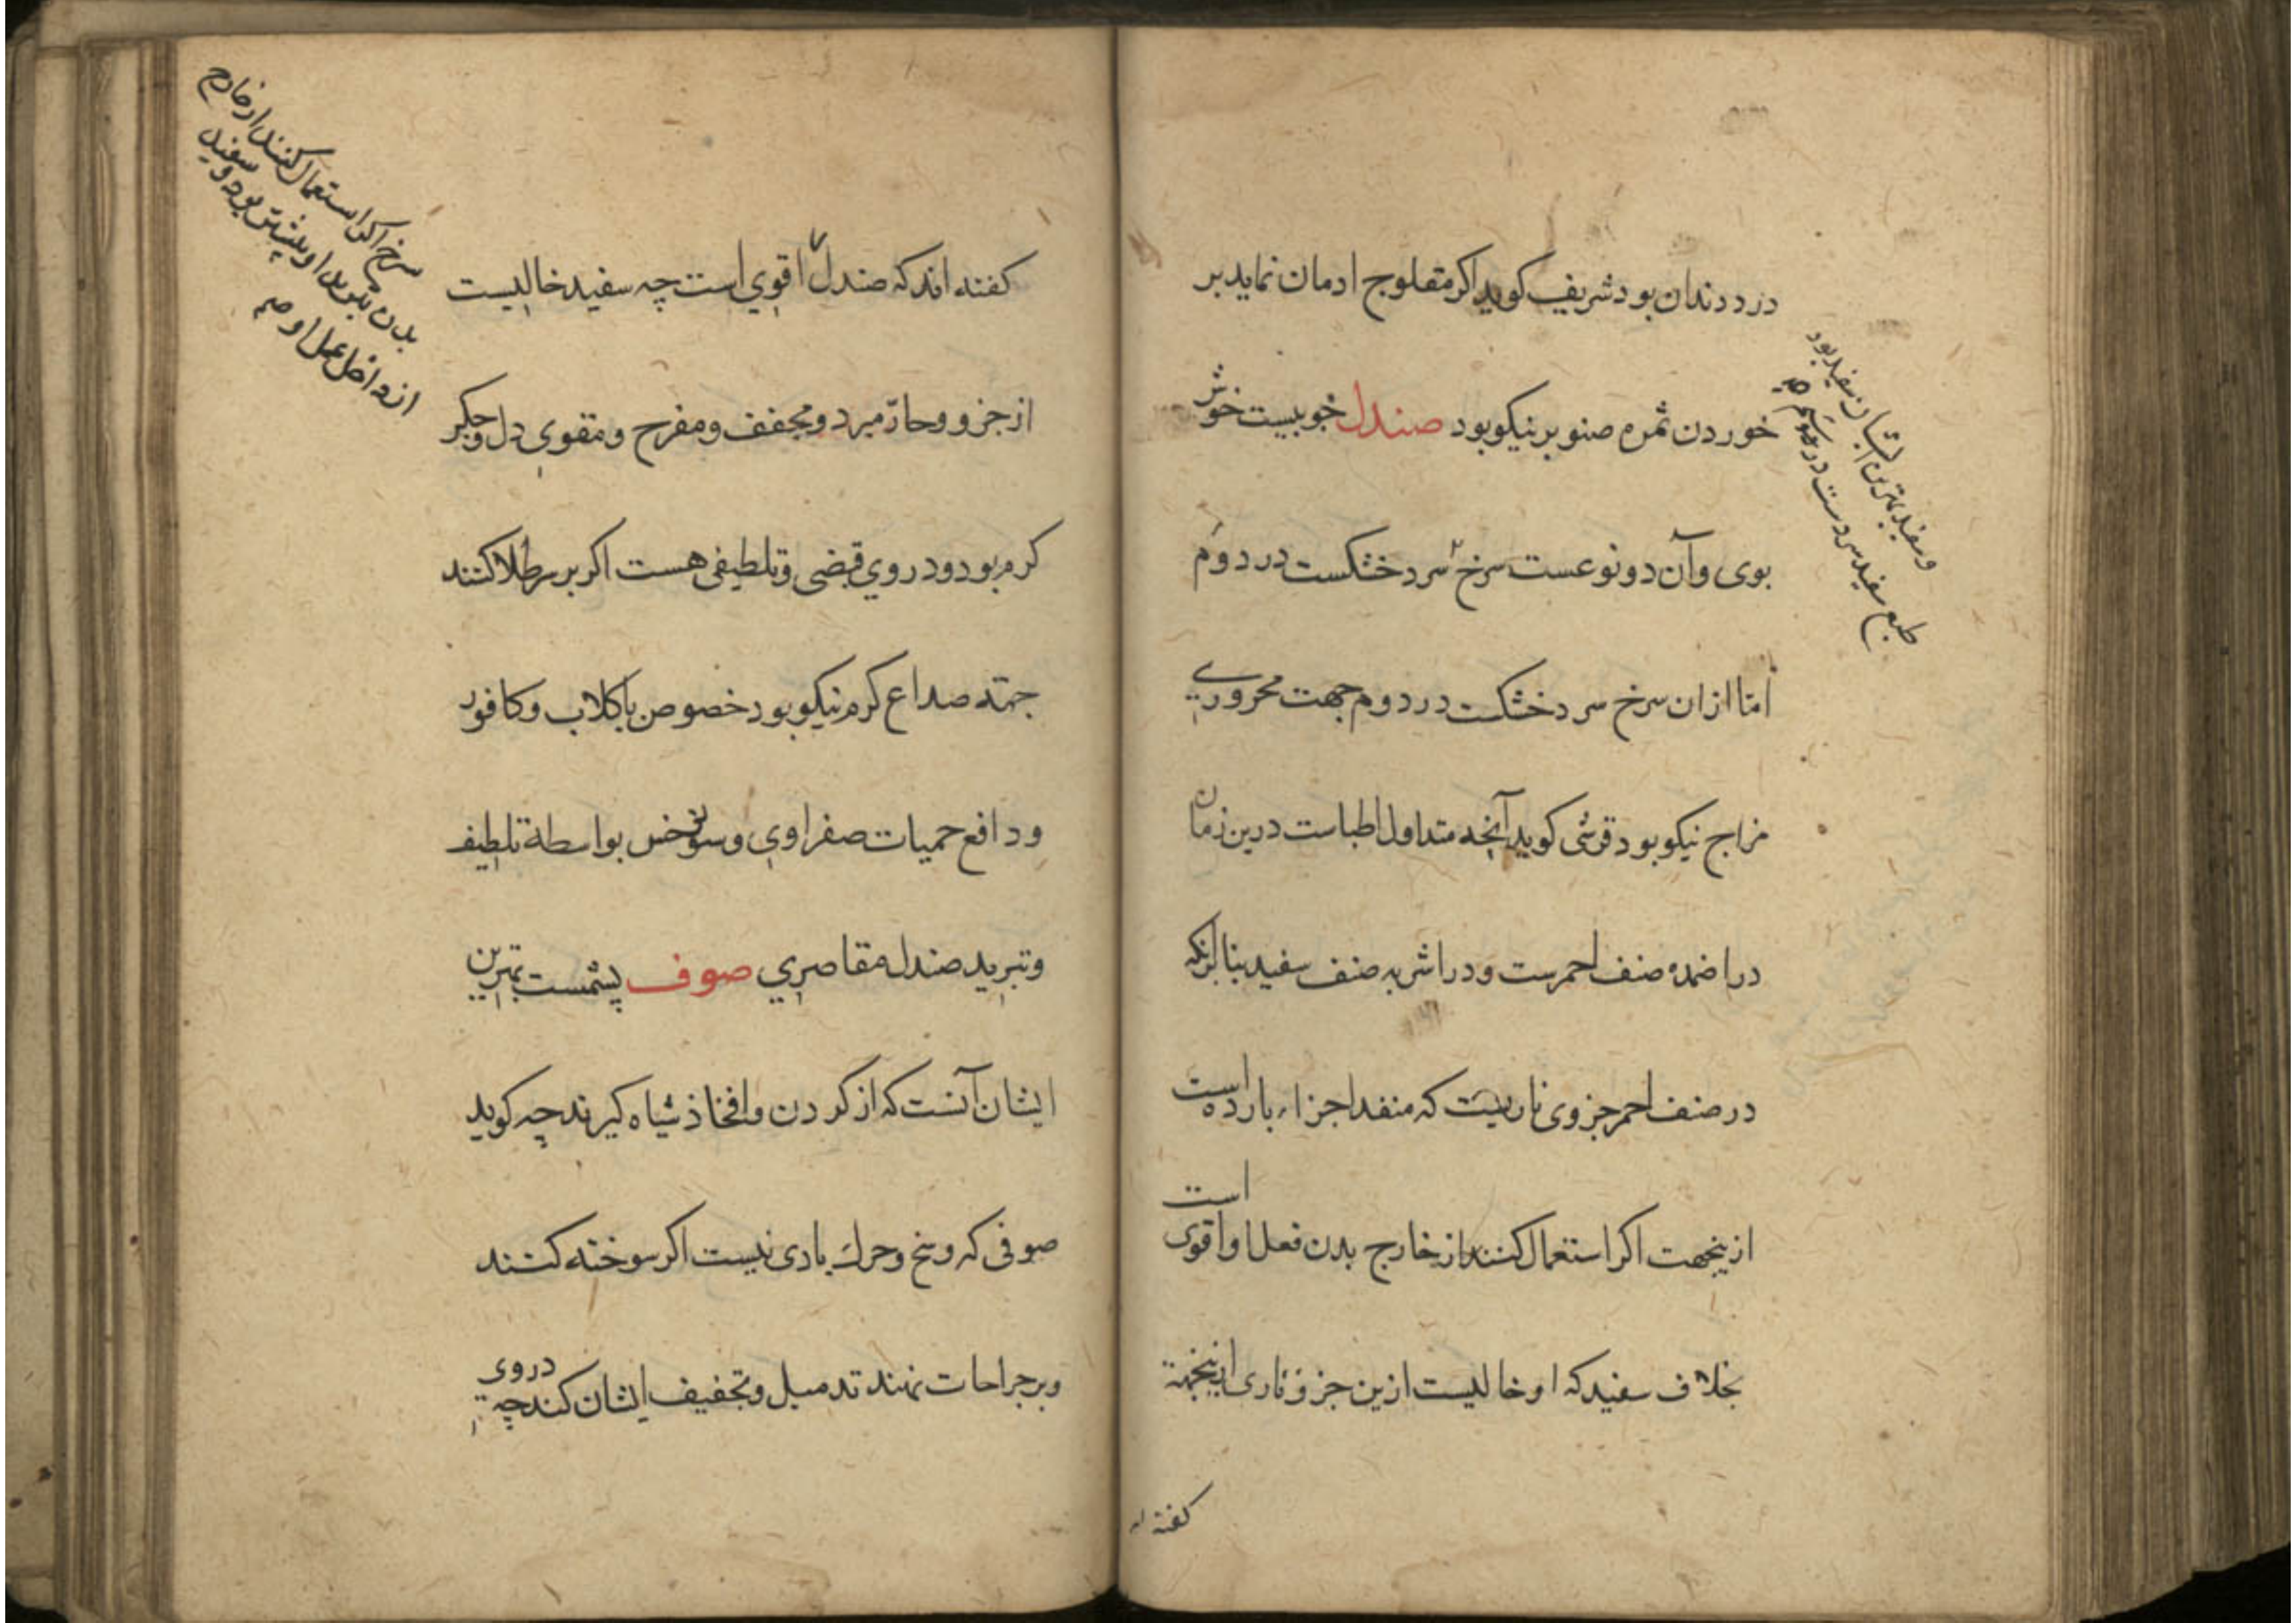 درد دندان بود شریف کوید اکر مفلوج ادمان نماید بر
خوردن ثمره صنوبر نیکو بود صندل خوبیست خوش
بوی وآن دو نوعست سرخ سرد خشکست در دوم
اما ازان سرخ سرد خشکست در دوم جهت محروری
مزاج نیکو بود قرشی کوید آنچه متداول اطباست درین زمان
در اضمده صنف احمرست و در اشربه صنف سفید بنا برانکه
در صنف احمر جزوی ناریست که منفد اجزاء بارده است
ازینجهت اکر استعمال کنند از خارج بدن فعل او اقوی است
بخلاف سفید که او خالیست ازین جزو ناری ازینجهة
کفته اند
وسفید بهترین ایشان سفید بود
طبع سفید سردست در سیم
کفته اند که صندل اقوی است چه سفید خالیست
از جزو وحار مبرد ومجفف ومفرح ومقوی دل وجکر
کرم بود ودر وی قبضی وتلطیفی هست اکر بر سر طلا کنند
جهته صداع کرم نیکو بود خصوص باکلاب وکافور
ودافع حمیات صفراوی بواسطه تلطیف
وتبرید صندل مقاصری صوف پشمست بهترین
ایشان آنست که از کردن وافخاذ شیاه کیرند چه کوید
صوفی که وسخ وحرك بادی نیست اکر سوخته کنند
وبر جراحات نهند تدمیل وتجفیف ایشان کند چه در وی
سرخ اکر استعمال کنند از خارج
بدن تبرید او بیشتر بود وسفید
از داخل عمل او